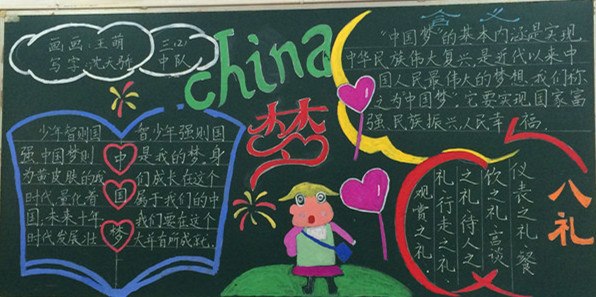 画画:王萌
写字:沈天骄
三(2)
中队
china
梦
含义
“中国梦”的基本内涵是实现
中华民族伟大复兴是近代以来中
国人民最伟大的梦想,我们称
之为中国梦;它要实现国家富
强,民族振兴,人民幸福.
少年智则国
强.中国梦则
为黄皮肤的我
时代.量化着
国.未来十年.
时代发展.壮
中
国
梦
智少年强则国
是我的梦,身
们成长在这个
属于我们的中
我们要在这个
大.有所成就.
八礼
仪表之礼 餐
饮之礼 言谈
之礼 待人之
礼 行走之礼.
观赏之礼.